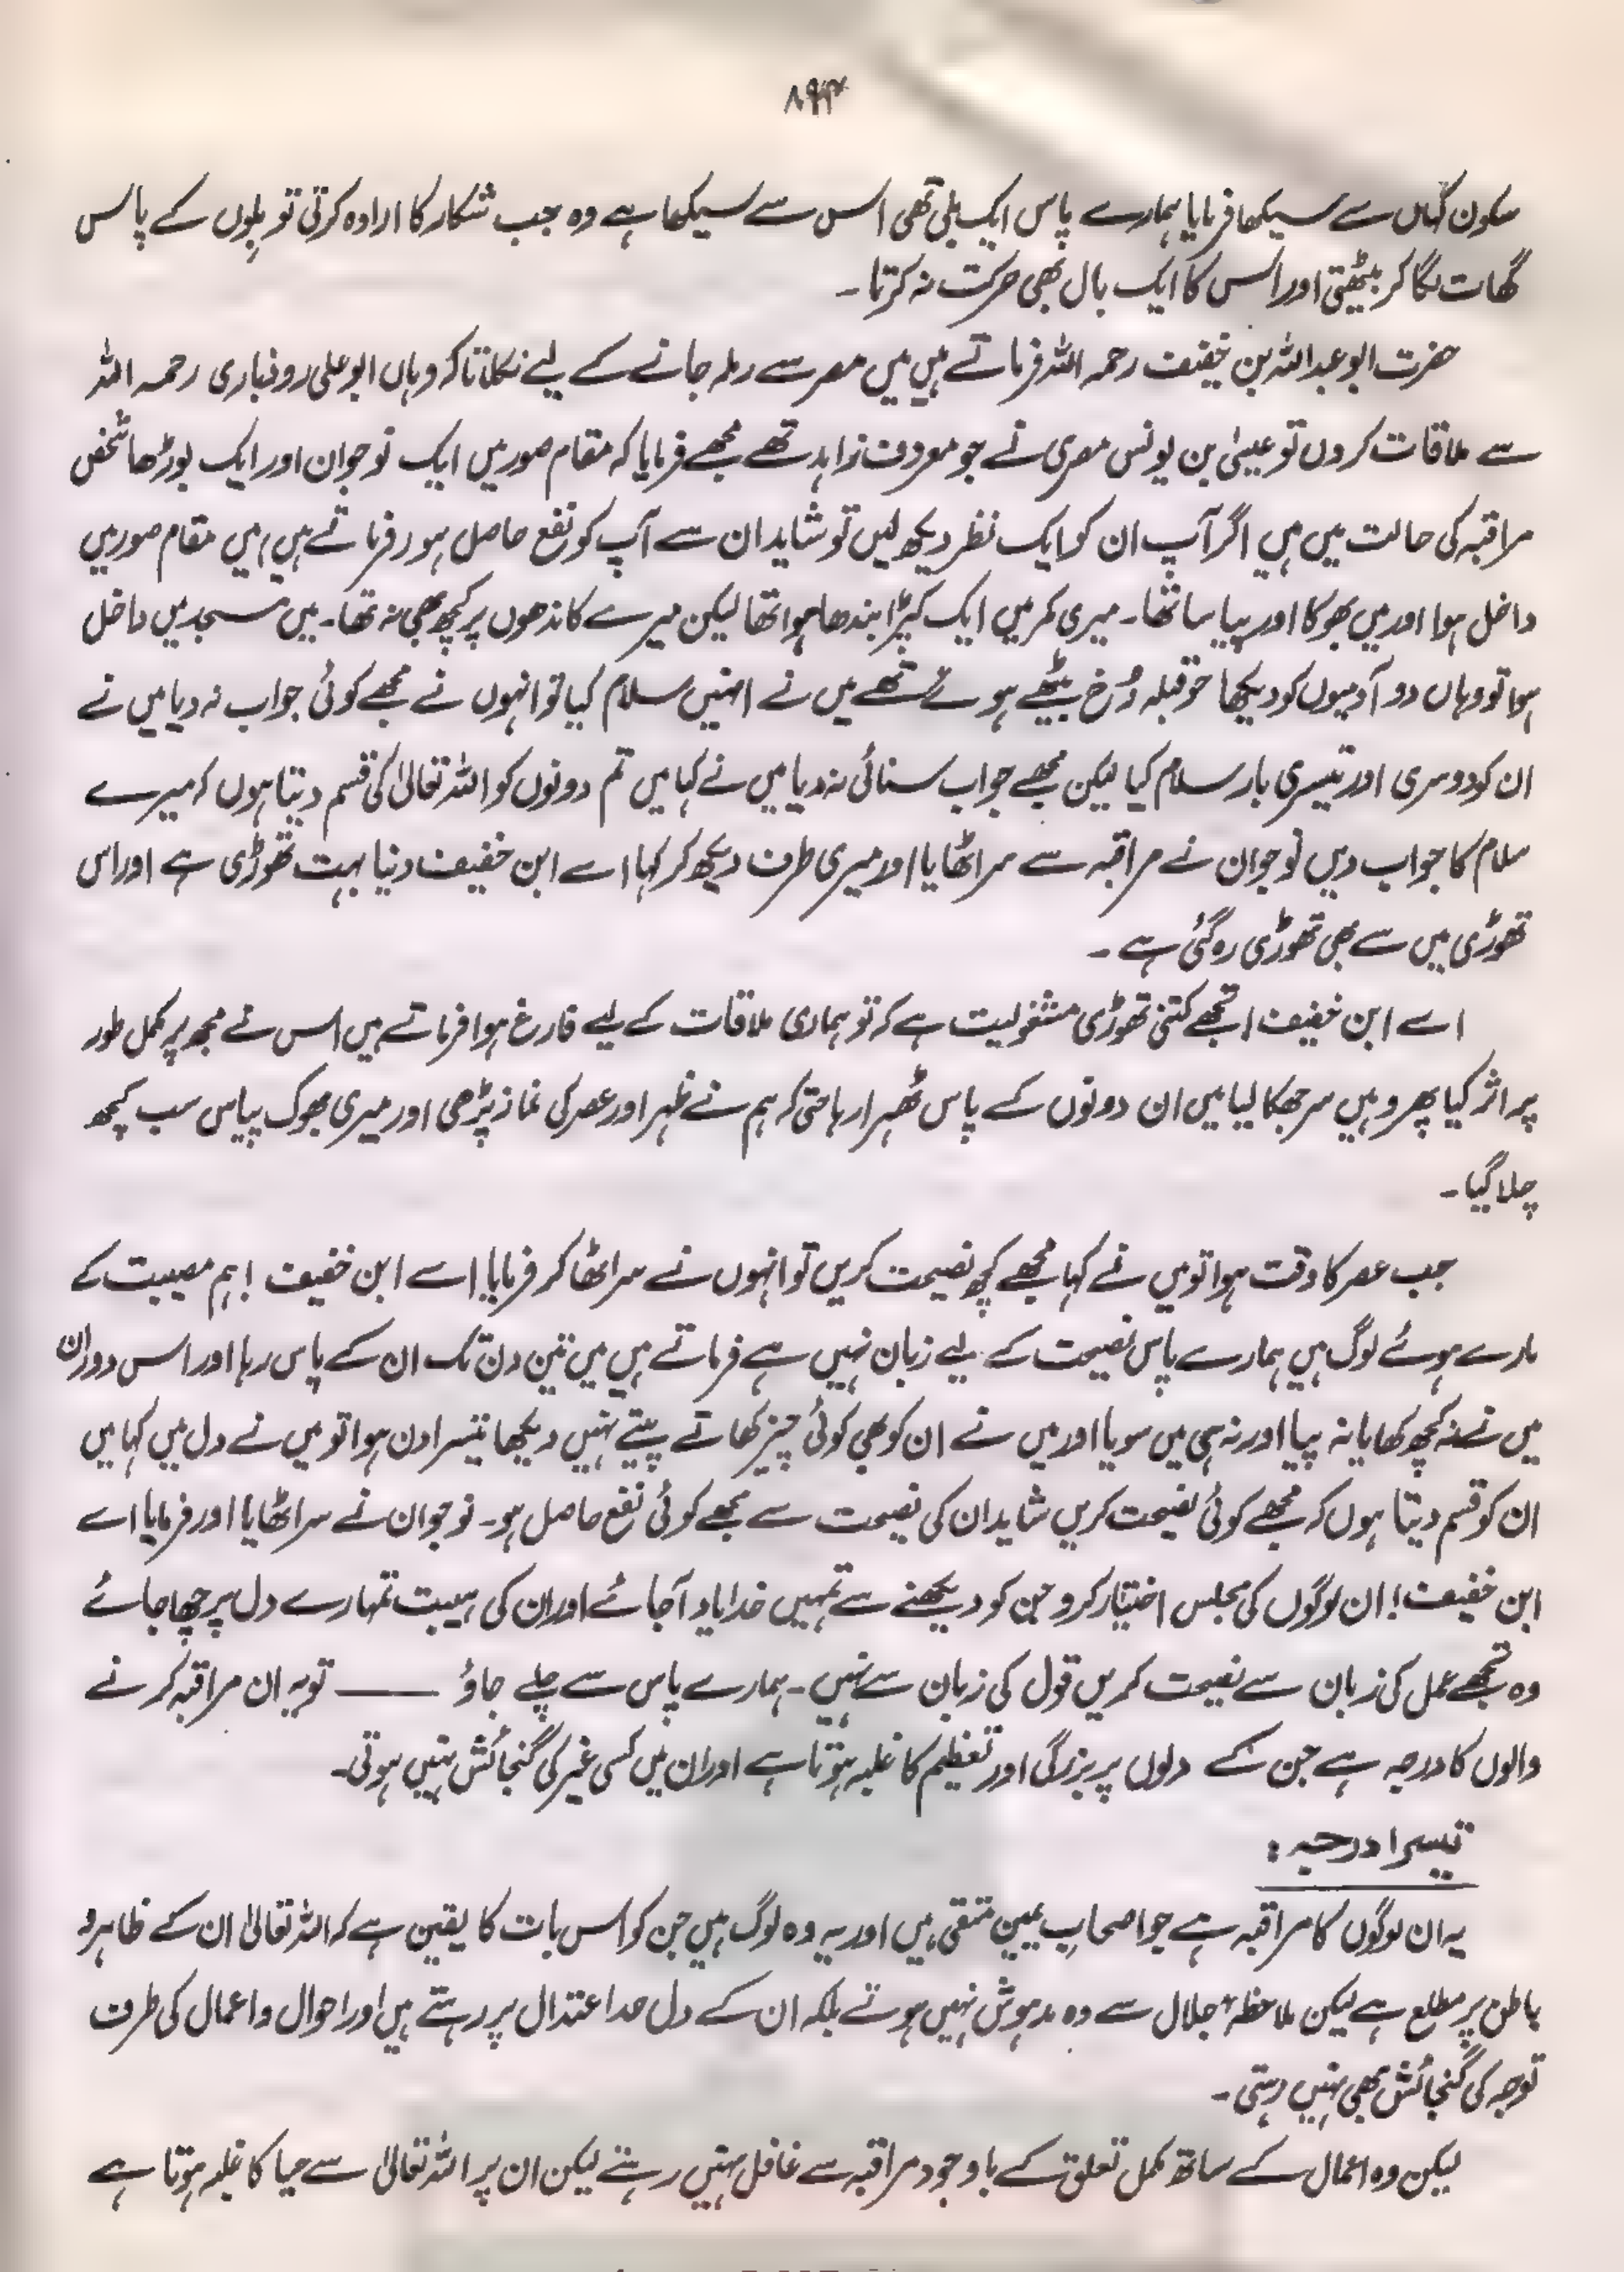 ۸۹۴
سکون کہاں سے سیکھا فرمایا ہمارے پاس ایک بلی تھی اس سے سیکھا ہے وہ جب شکار کا ارادہ کرتی تو بِلوں کے پاس
گھات لگا کر بیٹھتی اور اس کا ایک بال بھی حرکت نہ کرتا ۔
حضرت ابو عبداللہ بن خفیف رحمہ اللہ فرماتے ہیں میں مصر سے رملہ جانے کے لیے نکلا تاکہ وہاں ابو علی روذباری رحمہ اللہ
سے ملاقات کروں تو عیسیٰ بن یونس مصری نے جو معروف زاہد تھے مجھے فرمایا کہ مقام صور میں ایک نوجوان اور ایک بوڑھا شخص
مراقبہ کی حالت میں ہیں اگر آپ ان کو ایک نظر دیکھ لیں تو شاید ان سے آپ کو نفع حاصل ہو (فرماتے ہیں) میں مقام صور میں
داخل ہوا اور میں بھوکا اور پیاسا تھا۔ میری کمر میں ایک کپڑا بندھا ہوا تھا لیکن میرے کاندھوں پر کچھ بھی نہ تھا۔ میں مسجد میں داخل
ہوا تو وہاں دو آدمیوں کو دیکھا جو قبلہ رُخ بیٹھے ہوئے تھے میں نے انہیں سلام کیا تو انہوں نے مجھے کوئی جواب نہ دیا میں نے
ان کو دوسری اور تیسری بار سلام کیا لیکن مجھے جواب سنائی نہ دیا میں نے کہا میں تم دونوں کو اللہ تعالیٰ کی قسم دیتا ہوں کہ میرے
سلام کا جواب دیں نوجوان نے مراقبہ سے سر اٹھایا اور میری طرف دیکھ کر کہا اے ابن خفیف دنیا بہت تھوڑی ہے اور اس
تھوڑی میں سے بھی تھوڑی رہ گئی ہے ۔
اے ابن خفیف! تجھے کتنی تھوڑی مشغولیت ہے کہ تو ہماری ملاقات کے لیے فارغ ہوا فرماتے ہیں اس نے مجھ پر مکمل طور
پر اثر کیا پھر وہیں سر جھکا لیا میں ان دونوں کے پاس ٹھہرا رہا حتیٰ کہ ہم نے ظہر اور عصر کی نماز پڑھی اور میری بھوک پیاس سب کچھ
چلا گیا ۔
جب عصر کا وقت ہوا تو میں نے کہا مجھے کچھ نصیحت کریں تو انہوں نے سر اٹھا کر فرمایا اے ابن خفیف ! ہم مصیبت کے
مارے ہوئے لوگ ہیں ہمارے پاس نصیحت کے لیے زبان نہیں ہے فرماتے ہیں میں تین دن تک ان کے پاس رہا اور اس دوران
میں نے نہ کچھ کھایا نہ پیا اور نہ ہی میں سویا اور میں نے ان کو بھی کوئی چیز کھاتے پیتے نہیں دیکھا تیسرا دن ہوا تو میں نے دل میں کہا میں
ان کو قسم دیتا ہوں کہ مجھے کوئی نصیحت کریں شاید ان کی نصیحت سے مجھے کوئی نفع حاصل ہو۔ نوجوان نے سر اٹھایا اور فرمایا اے
ابن خفیف! ان لوگوں کی مجلس اختیار کرو جن کو دیکھنے سے تمہیں خدا یاد آجائے اور ان کی ہیبت تمہارے دل پر چھا جائے
وہ تجھے عمل کی زبان سے نصیحت کریں قول کی زبان سے نہیں۔ ہمارے پاس سے چلے جاؤ ــــــــ تو یہ ان مراقبہ کرنے
والوں کا درجہ ہے جن کے دلوں پر بزرگی اور تعظیم کا غلبہ ہوتا ہے اور ان میں کسی غیر کی گنجائش نہیں ہوتی۔
تیسرا درجہ :
یہ ان لوگوں کا مراقبہ ہے جو اصحابِ یمین متقی ہیں اور یہ وہ لوگ ہیں جن کو اس بات کا یقین ہے کہ اللہ تعالیٰ ان کے ظاہر و
باطن پر مطلع ہے لیکن ملاحظۂ جلال سے وہ مدہوش نہیں ہوتے بلکہ ان کے دل حد اعتدال پر رہتے ہیں اور احوال و اعمال کی طرف
توجہ کی گنجائش بھی نہیں رہتی ۔
لیکن وہ اعمال کے ساتھ مکمل تعلق کے باوجود مراقبہ سے غافل نہیں رہتے لیکن ان پر اللہ تعالیٰ سے حیا کا غلبہ ہوتا ہے